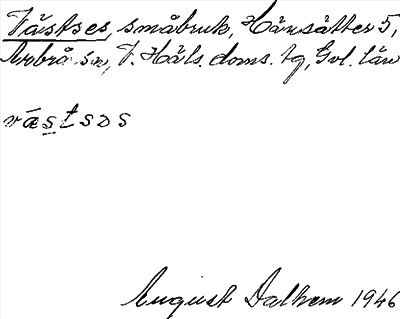 Västses, småbruk, Hänsätter 5,
Arbrå sn, V. Häls. doms. tg, Gvl. län
västsəs
August Dalhem 1946